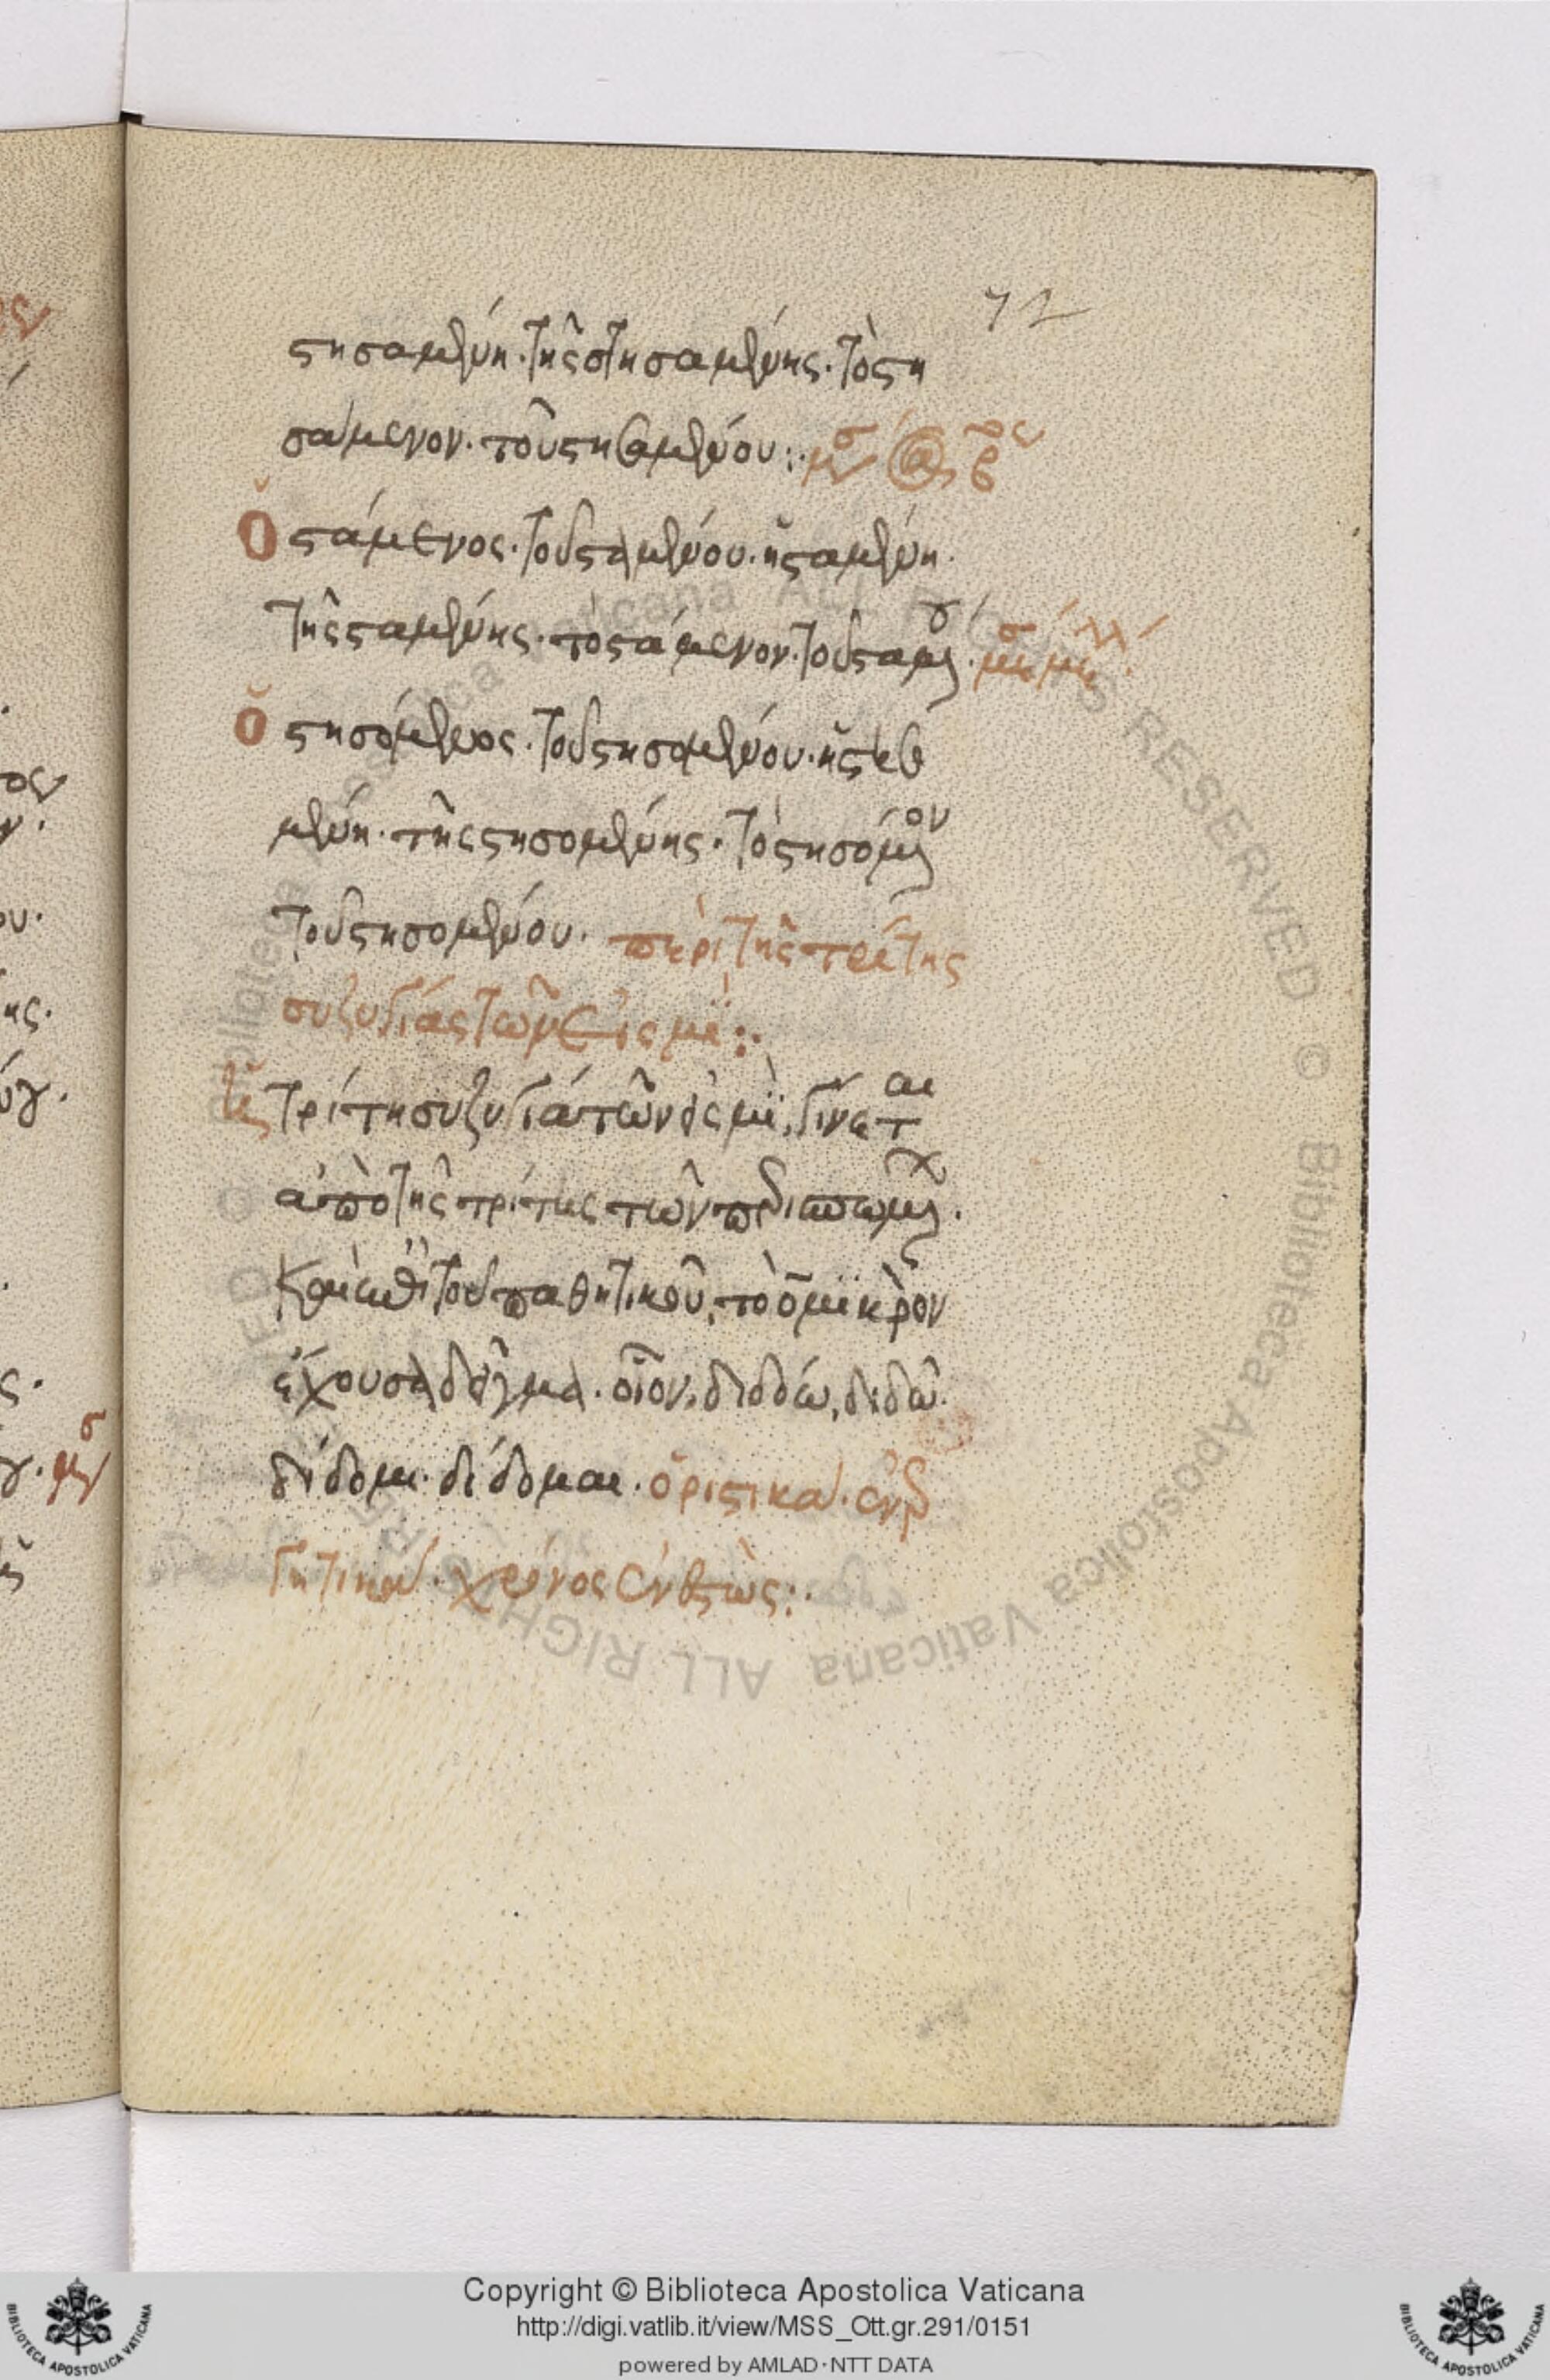 72
στησαμένη· τῆς στησαμένης· τὸ στη
σάμενον· τοῦ στησαμένου:·
Ὁ στάμενος· τοῦ σταμένου· ἡ σταμένη·
τῆς σταμένης· τὸ στάμενον· τοῦ σταμ
ὁ στησόμενος· τοῦ στησομένου· ἡ στησο
μένη· τῆς στησομένης· τὸ στησόμενον
τοῦ στησομένου· περὶ τῆς τρίτης
συζυγίας τῶν εἰς μι:·
τρίτη συζυγία τῶν εἰς μι, γίνεται
ἀπὸ τῆς τρίτης τῶν περισπωμ·
καὶ ἐπὶ τοῦ παθητικοῦ, τὸ ο μικρὸν
ἔχουσα δεῖγμα· οἷον, διδόω, διδῶ·
δίδωμι· δίδομαι· ὁριστικὰ· ἐνερ
γητικά· χρόνος ἐνεστώς:·
Copyright © Biblioteca Apostolica Vaticana
http://digi.vatlib.it/view/MSS_Ott.gr.291/0151
powered by AMLAD·NTT DATA
BIBLIOTECA APOSTOLICA VATICANA
BIBLIOTECA APOSTOLICA VATICANA